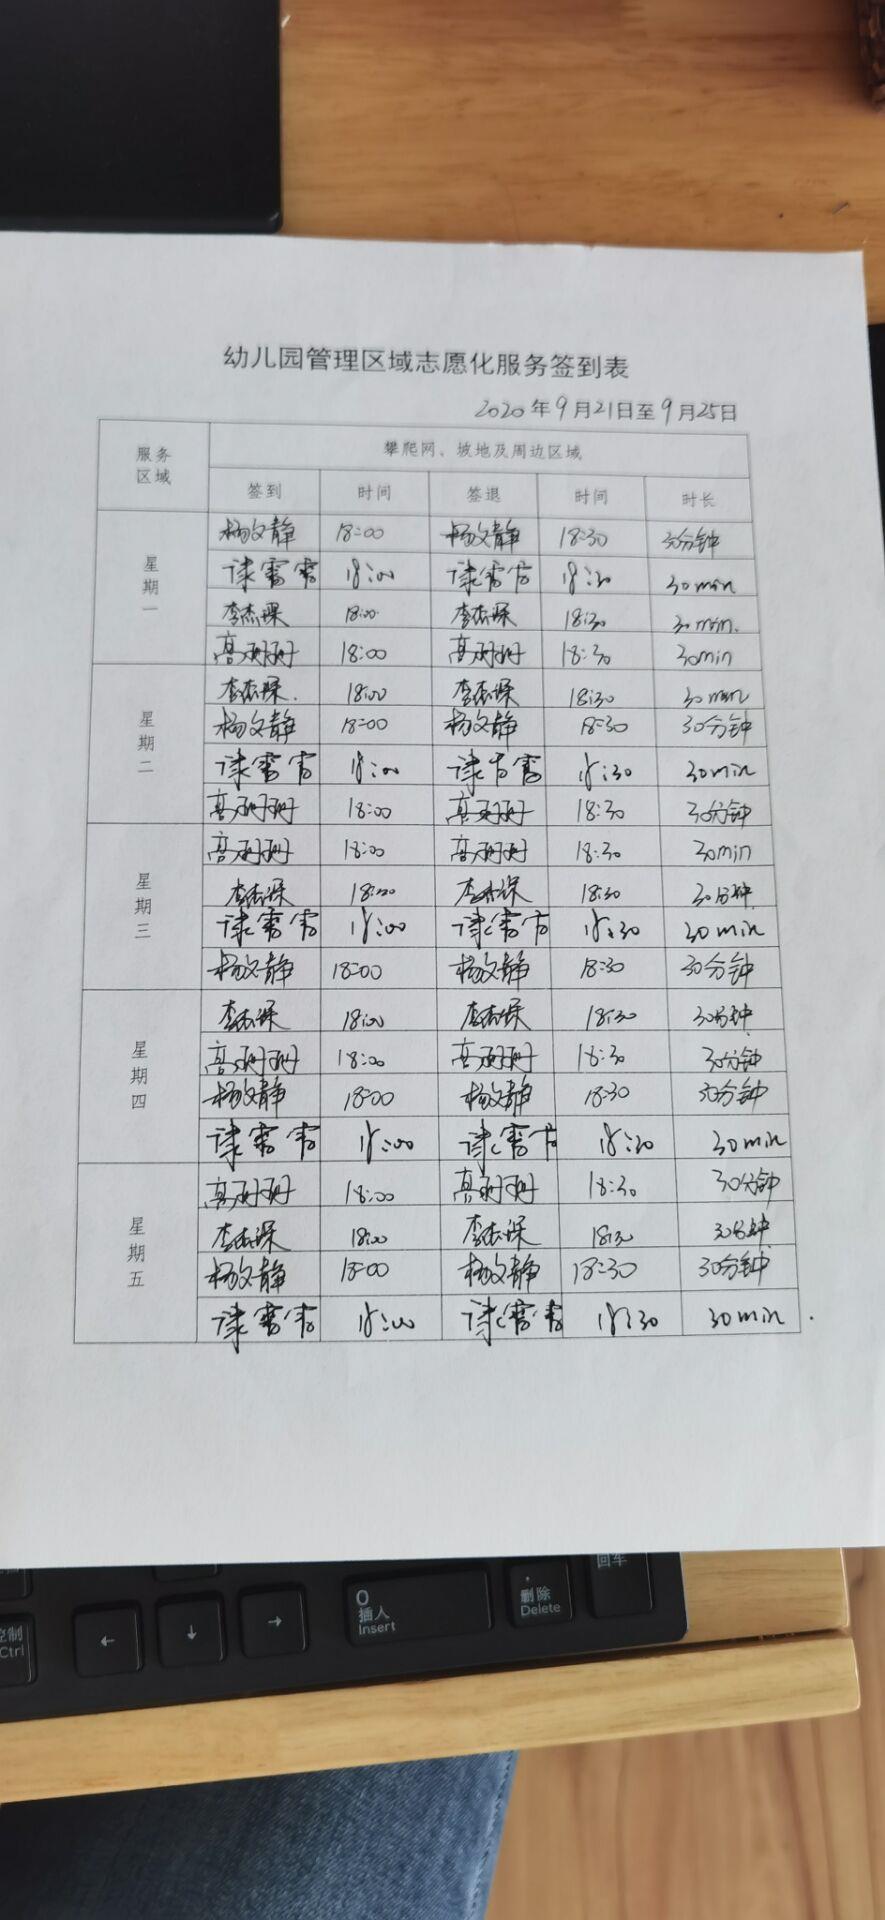 幼儿园管理区域志愿化服务签到表
2020年9月21日至9月25日
服务区域 攀爬网、坡地及周边区域
签到 时间 签退 时间 时长
星期一
杨文静 18:00 杨文静 18:30 30分钟
18:00 18:30 30min
李杰琛 18:00 李杰琛 18:30 30min.
高珊珊 18:00 高珊珊 18:30 30min
星期二
李杰琛. 18:00 李杰琛 18:30 30min
杨文静 18:00 杨文静 18:30 30分钟
18:00 18:30 30min
高珊珊 18:00 高珊珊 18:30 30分钟
星期三
高珊珊 18:00 高珊珊 18:30 30min
李杰琛 18:00 李杰琛 18:30 30分钟
18:00 18:30 30min
杨文静 18:00 杨文静 18:30 30分钟
星期四
李杰琛 18:00 李杰琛 18:30 30分钟
高珊珊 18:00 高珊珊 18:30 30分钟
杨文静 18:00 杨文静 18:30 30分钟
18:00 18:30 30min
星期五
高珊珊 18:00 高珊珊 18:30 30分钟
李杰琛 18:00 李杰琛 18:30 30分钟
杨文静 18:00 杨文静 18:30 30分钟
18:00 18:30 30min
回车
控制 Ctrl
← ↓ →
0 插入 Insert
. 删除 Delete